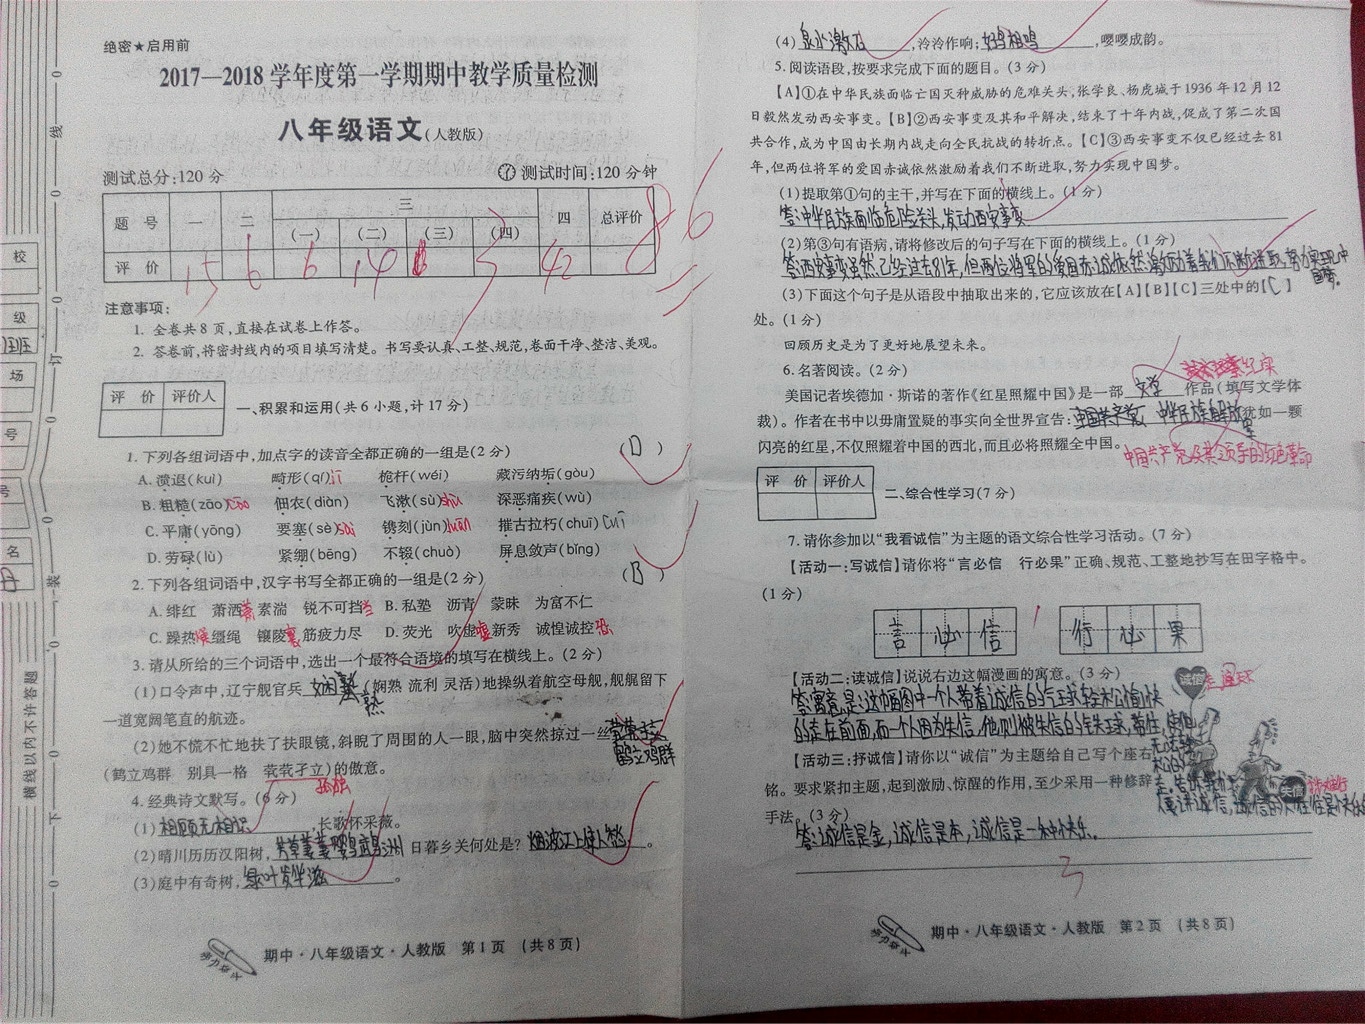 绝密★启用前
2017—2018学年度第一学期期中教学质量检测
八年级语文(人教版)
测试总分:120分 测试时间:120分钟
题 号 一 二 三 四 总评价
(一) (二) (三) (四)
评 价 15 6 6 14 42 86
注意事项:
1. 全卷共8页,直接在试卷上作答。
2. 答卷前,将密封线内的项目填写清楚。书写要认真、工整、规范,卷面干净、整洁、美观。
评 价 评价人
一、积累和运用(共6小题,计17分)
1. 下列各组词语中,加点字的读音全都正确的一组是(2分) (D)
A. 溃退(kuì) 畸形(qí)jī 桅杆(wéi) 藏污纳垢(gòu)
B. 粗糙(zāo)cāo 佃农(diàn) 飞漱(sù)shù 深恶痛疾(wù)
C. 平庸(yōng) 要塞(sè)sài 镌刻(jùn)juān 摧古拉朽(chuī)cuī
D. 劳碌(lù) 紧绷(bēng) 不辍(chuò) 屏息敛声(bǐng)
2. 下列各组词语中,汉字书写全都正确的一组是(2分) (B)
A. 绯红 萧洒潇 素湍 锐不可挡当 B. 私塾 沥青 蒙昧 为富不仁
C. 躁热燥 缰绳 镶陵襄 筋疲力尽 D. 荧光 吹虚嘘 新秀 诚惶诚控恐
3. 请从所给的三个词语中,选出一个最符合语境的填写在横线上。(2分)
(1)口令声中,辽宁舰官兵 娴熟 (娴熟 流利 灵活)地操纵着航空母舰,舰艉留下
熟
一道宽阔笔直的航迹。
(2)她不慌不忙地扶了扶眼镜,斜睨了周围的人一眼,脑中突然掠过一丝
鹤立鸡群
(鹤立鸡群 别具一格 茕茕孑立)的傲意。
4. 经典诗文默写。(6分)
(1)相顾无相识 长歌怀采薇。
(2)晴川历历汉阳树,芳草萋萋鹦鹉洲 日暮乡关何处是? 烟波江上使人愁。
(3)庭中有奇树,绿叶发华滋。
期中·八年级语文·人教版 第1页 (共8页)
(4)泉水激石,泠泠作响;好鸟相鸣,嘤嘤成韵。
5. 阅读语段,按要求完成下面的题目。(3分)
【A】①在中华民族面临亡国灭种威胁的危难关头,张学良、杨虎城于1936年12月12
日毅然发动西安事变。【B】②西安事变及其和平解决,结束了十年内战,促成了第二次国
共合作,成为中国由长期内战走向全民抗战的转折点。【C】③西安事变不仅已经过去81
年,但两位将军的爱国赤诚依然激励着我们不断进取,努力实现中国梦。
(1)提取第①句的主干,并写在下面的横线上。(1分)
答:中华民族面临危险关头,发动西安事变
(2)第③句有语病,请将修改后的句子写在下面的横线上。(1分)
答:西安事变虽然已经过去81年,但两位将军的爱国赤诚依然激励着我们不断进取,努力实现中
国梦。
(3)下面这个句子是从语段中抽取出来的,它应该放在【A】【B】【C】三处中的【C】
处。(1分)
回顾历史是为了更好地展望未来。
6. 名著阅读。(2分)
美国记者埃德加·斯诺的著作《红星照耀中国》是一部 文学 作品(填写文学体
裁)。作者在书中以毋庸置疑的事实向全世界宣告:中国共产党 中华民族解放 犹如一颗
闪亮的红星,不仅照耀着中国的西北,而且必将照耀全中国。
中国共产党及其领导的红色革命
评 价 评价人
二、综合性学习(7分)
7. 请你参加以“我看诚信”为主题的语文综合性学习活动。(7分)
【活动一:写诚信】请你将“言必信 行必果”正确、规范、工整地抄写在田字格中。
(1分)
言 必 信 行 必 果
【活动二:读诚信】说说右边这幅漫画的寓意。(3分)
诚信
气球
答:寓意是:这幅图中一个人带着诚信的气球轻松愉快
的走在前面,而一个人因为失信,他则被失信的铅球
【活动三:抒诚信】请你以“诚信”为主题给自己写个座右
铭。要求紧扣主题,起到激励、惊醒的作用,至少采用一种修辞
失信
手法。(3分)
答:诚信是金,诚信是本,诚信是一种快乐。
3
期中·八年级语文·人教版 第2页 (共8页)
校
级
班
场
号
名
线
订
装
下
横线以内不许答题